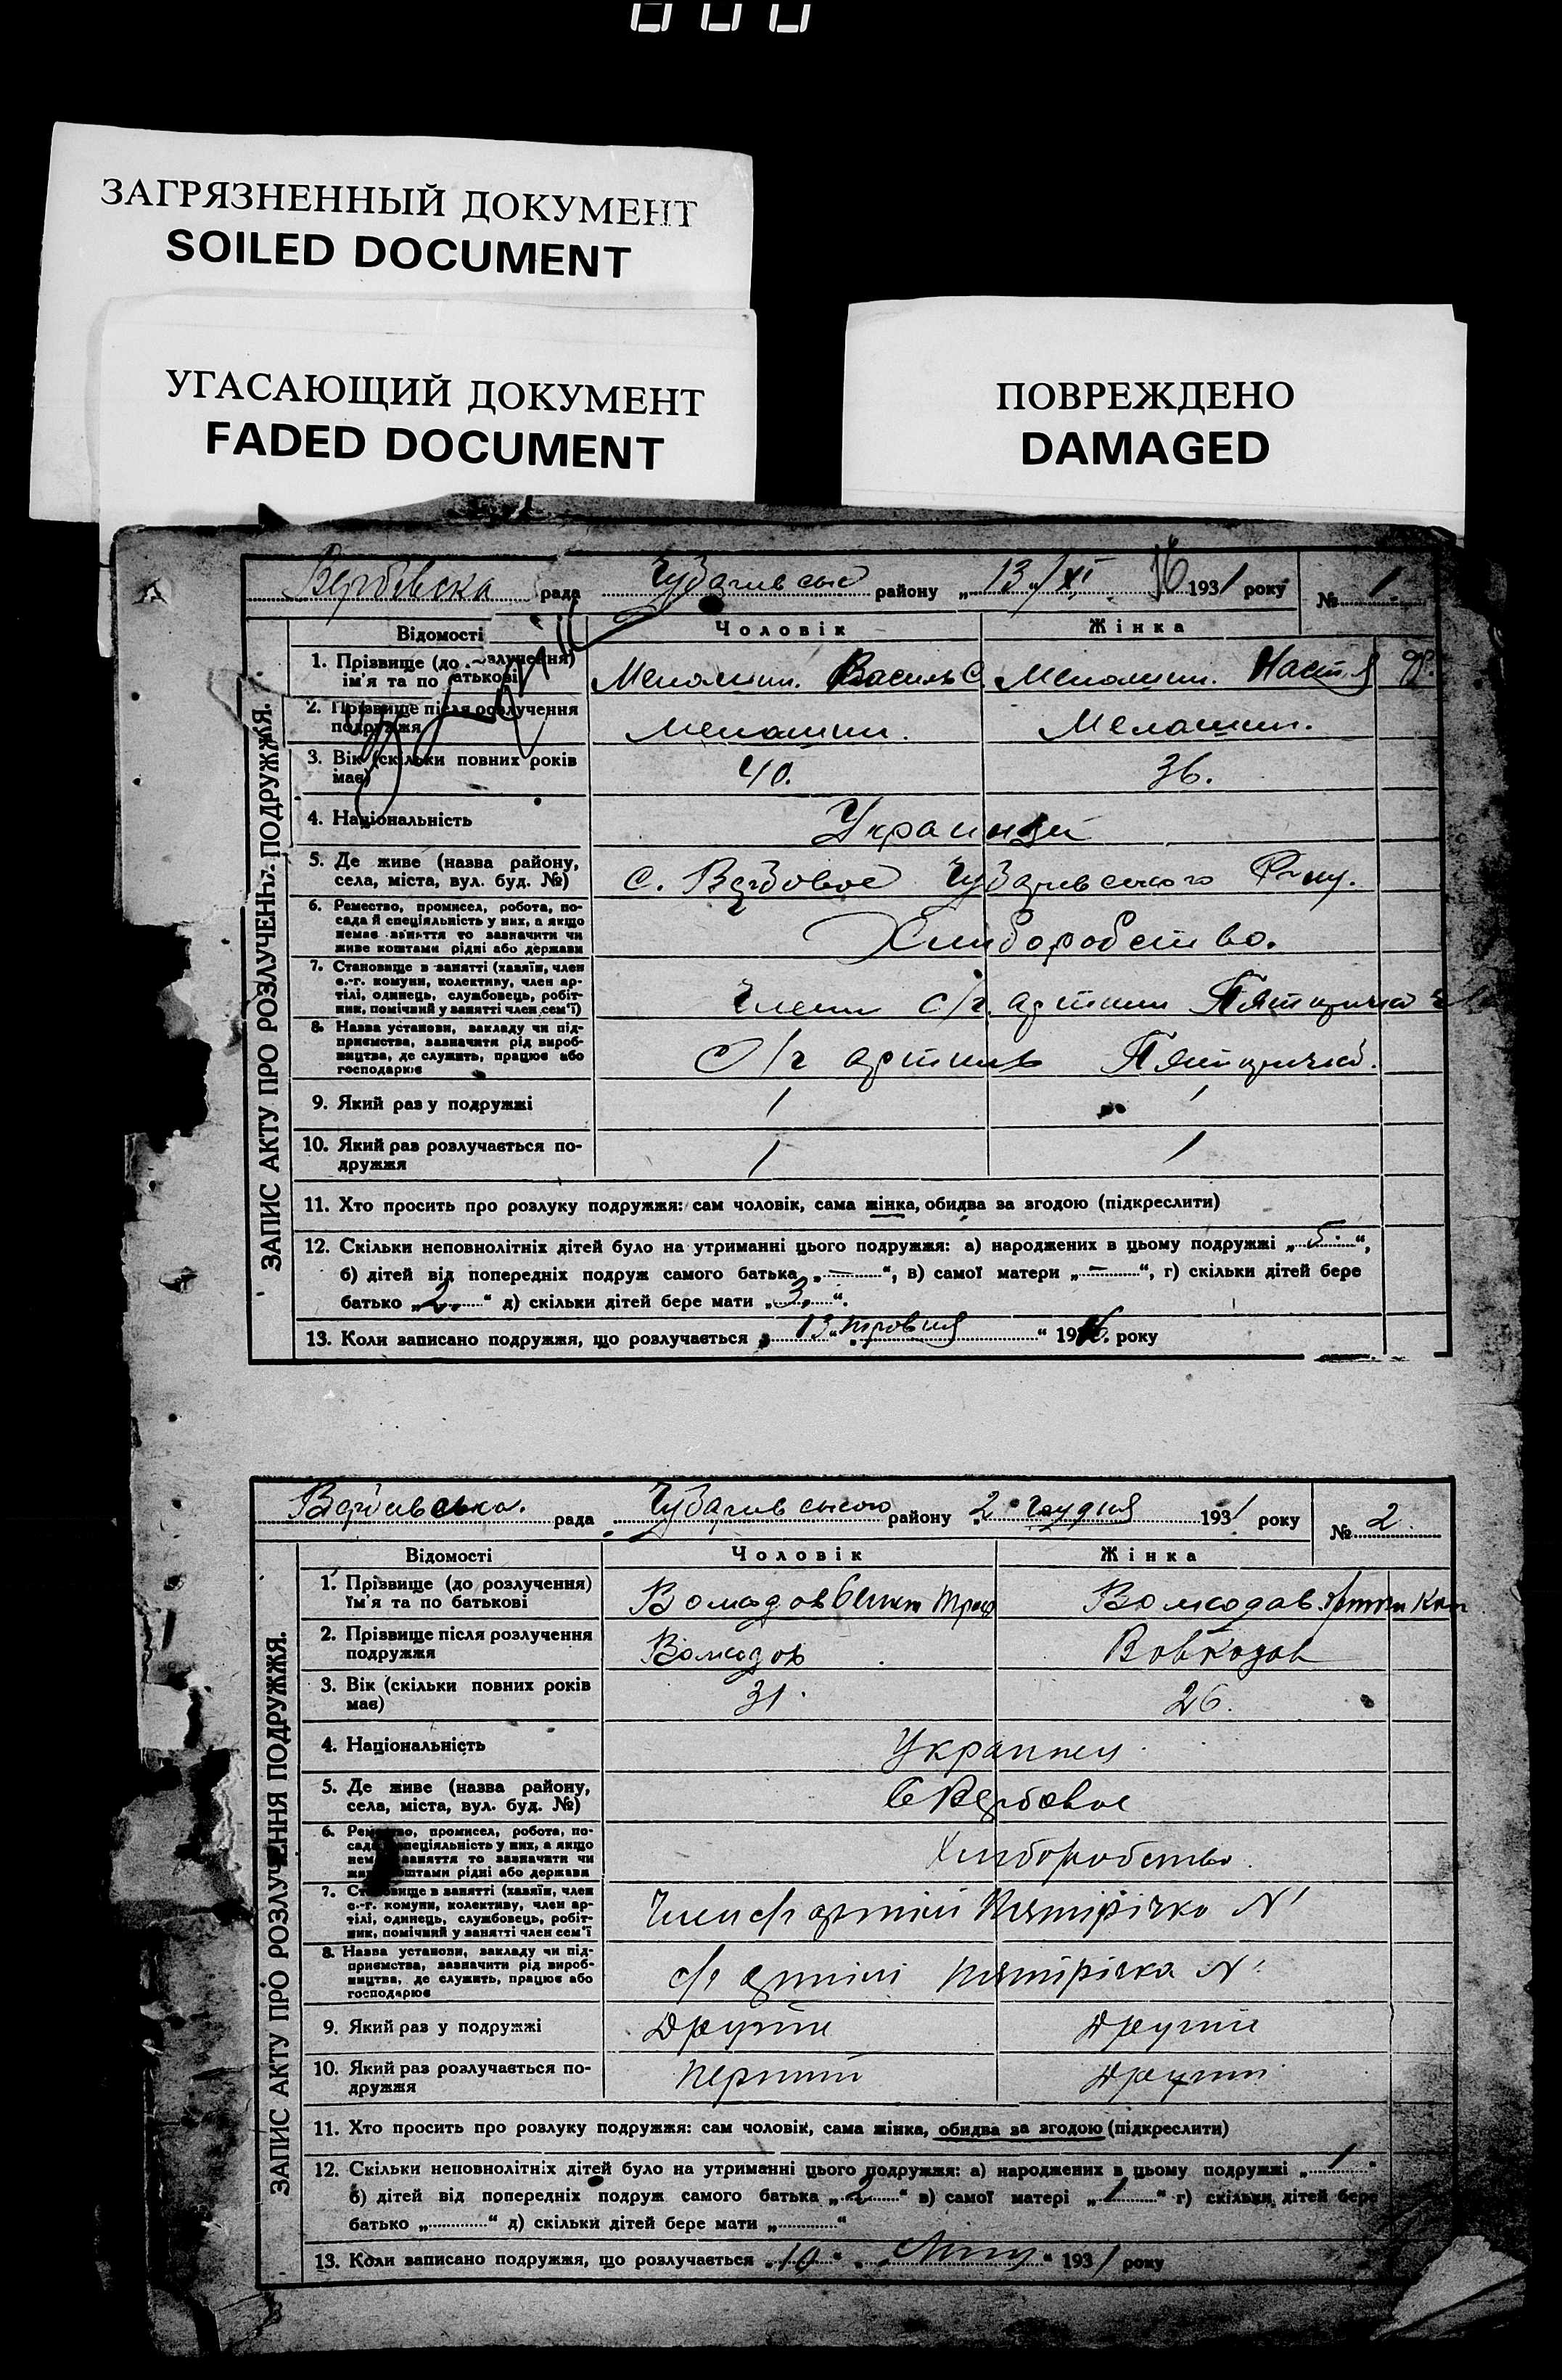 ЗАГРЯЗНЕННЫЙ ДОКУМЕНТ
SOILED DOCUMENT
УГАСАЮЩИЙ ДОКУМЕНТ
FADED DOCUMENT
ПОВРЕЖДЕНО
DAMAGED
Вербівська рада району „13/XI 1931 року № 1
ЗАПИС АКТУ ПРО РОЗЛУЧЕННЯ ПОДРУЖЖЯ.
Відомості Чоловік Жінка
1. Прізвище (до розлучення) ім'я та по батькові Василь С. Настя Ф.
2. Прізвище після розлучення подружжя
3. Вік (скільки повних років має) 40. 36.
4. Національність Украинци
5. Де живе (назва району, села, міста, вул. буд. №) с. Вербовое
6. Ремество, промисел, робота, по-
сада й спеціяльність у них, а якщо
немає заняття то зазначити чи
живе коштами рідні або держави Хлиборобство.
7. Становище в занятті (хазяїн, член
с.-г. комуни, колективу, член ар-
тілі, одинець, службовець, робіт-
ник, помічний у занятті член сем'ї) Члени с/г. артили
8. Назва установи, закладу чи під-
приємства, зазначити рід вироб-
ництва, де служить, працює або
господарює С/г артиль
9. Який раз у подружжі 1 1
10. Який раз розлучається по-
дружжя 1 1
11. Хто просить про розлуку подружжя: сам чоловік, сама жінка, обидва за згодою (підкреслити)
12. Скільки неповнолітніх дітей було на утриманні цього подружжя: а) народжених в цьому подружжі „5“,
б) дітей від попередніх подруж самого батька „—“, в) самої матери „—“, г) скільки дітей бере
батько „2.“ д) скільки дітей бере мати „3.“.
13. Коли записано подружжя, що розлучається „13“ „травня“ 19 року
Вербивська. рада району 2 грудня 1931 року № 2
ЗАПИС АКТУ ПРО РОЗЛУЧЕННЯ ПОДРУЖЖЯ.
Відомості Чоловік Жінка
1. Прізвище (до розлучення)
ім'я та по батькові
2. Прізвище після розлучення
подружжя Вовкодав
3. Вік (скільки повних років
має) 31. 26.
4. Національність Украинци
5. Де живе (назва району,
села, міста, вул. буд. №) С Вербовое
6. Ремество, промисел, робота, по-
сада й спеціяльність у них, а якщо
немає заняття то зазначити чи
живе коштами рідні або держави Хлиборобство.
7. Становище в занятті (хазяїн, член
с.-г. комуни, колективу, член ар-
тілі, одинець, службовець, робіт-
ник, помічний у занятті член сем'ї Член с/г артілі Пятирічка N1
8. Назва установи, закладу чи під-
приємства, зазначити рід вироб-
ництва, де служить, працює або
господарює с/г артілі Пятирічка N1
9. Який раз у подружжі Другий Другий
10. Який раз розлучається по-
дружжя Перший Другий
11. Хто просить про розлуку подружжя: сам чоловік, сама жінка, обидва за згодою (підкреслити)
12. Скільки неповнолітніх дітей було на утриманні цього подружжя: а) народжених в цьому подружжі „1“
б) дітей від попередніх подруж самого батька „2“ в) самої матері „1“ г) скільки дітей бере
батько „“ д) скільки дітей бере мати „“
13. Коли записано подружжя, що розлучається „10“ 1931 року